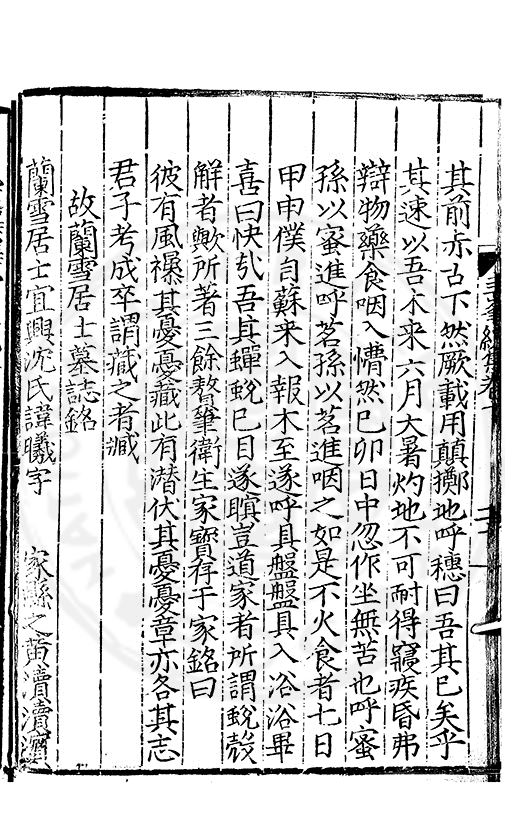 其前亦占下然厥載用顛擲地呼穗曰吾其已矣乎
其速以吾木来六月大暑灼地不可耐得寢疾昏弗
辯物藥食咽入懵然已卯日中忽作坐無苦也呼蜜
孫以蜜進呼茗孫以茗進咽之如是不火食者七日
甲申僕自蘇来入報木至遂呼具盤盤具入浴浴畢
喜曰快㢤吾其蟬蛻已目遂瞑豈道家者所謂蛻殼
解者歟所著三餘贅筆衛生家寶存于家銘曰
彼有風襮其憂憂藏此有潛伏其憂憂章亦各其志
君子考成卒謂藏之者臧
故蘭雪居士墓誌銘
蘭雪居士宜興沈氏諱曦字 家縣之黄瀆瀆瀕